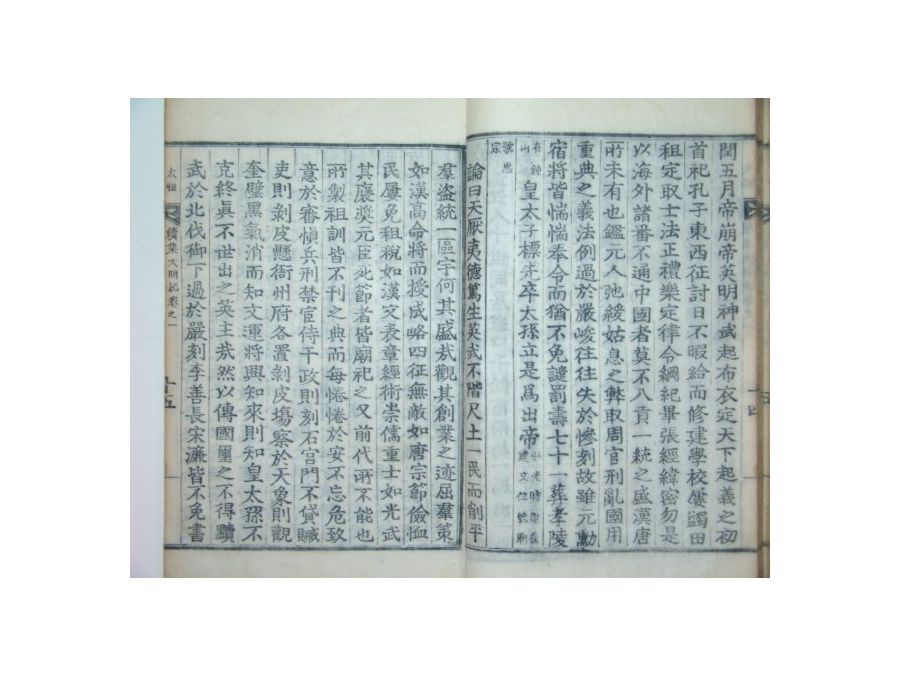 閏五月帝崩帝英明神武起布衣定天下起義之初
首祀孔子東西征討日不暇給而修建學校屢蠲田
租定取士法正禮樂定律令綱紀畢張經緯密勿是
以海外諸番不通中國者莫不入貢一統之盛漢唐
所未有也鑑元人弛緩姑息之弊取周官刑亂國用
重典之義法例過於嚴峻往往失於慘刻故雖元勳
宿將皆惴惴奉令而猶不免譴罰壽七十一葬孝陵
在鍾山皇太子標先卒太孫立是爲出帝弘光時追復建文位號廟
號思宗
論曰天厭夷德篤生英武不階尺土一民而削平
羣盜統一區宇何其盛哉觀其創業之迹屈羣策
如漢高命將而授成略四征無敵如唐宗節儉恤
民屢免租稅如漢文表章經術崇儒重士如光武
其襃奬元臣死節者皆廟祀之又前代所不能也
所製祖訓皆不刊之典而每惓惓於安不忘危致
意於審愼兵刑禁宦侍干政則刻石宮門不貸贓
吏則剥皮懸衙州府各置剥皮塲察於天象則觀
奎璧黑氣消而知文運將興知來則知皇太孫不
克終眞不世出之英主哉然以傳國璽之不得黷
武於北伐御下過於嚴刻李善長宋濂皆不免書
太祖 續集大明記卷之一 十五